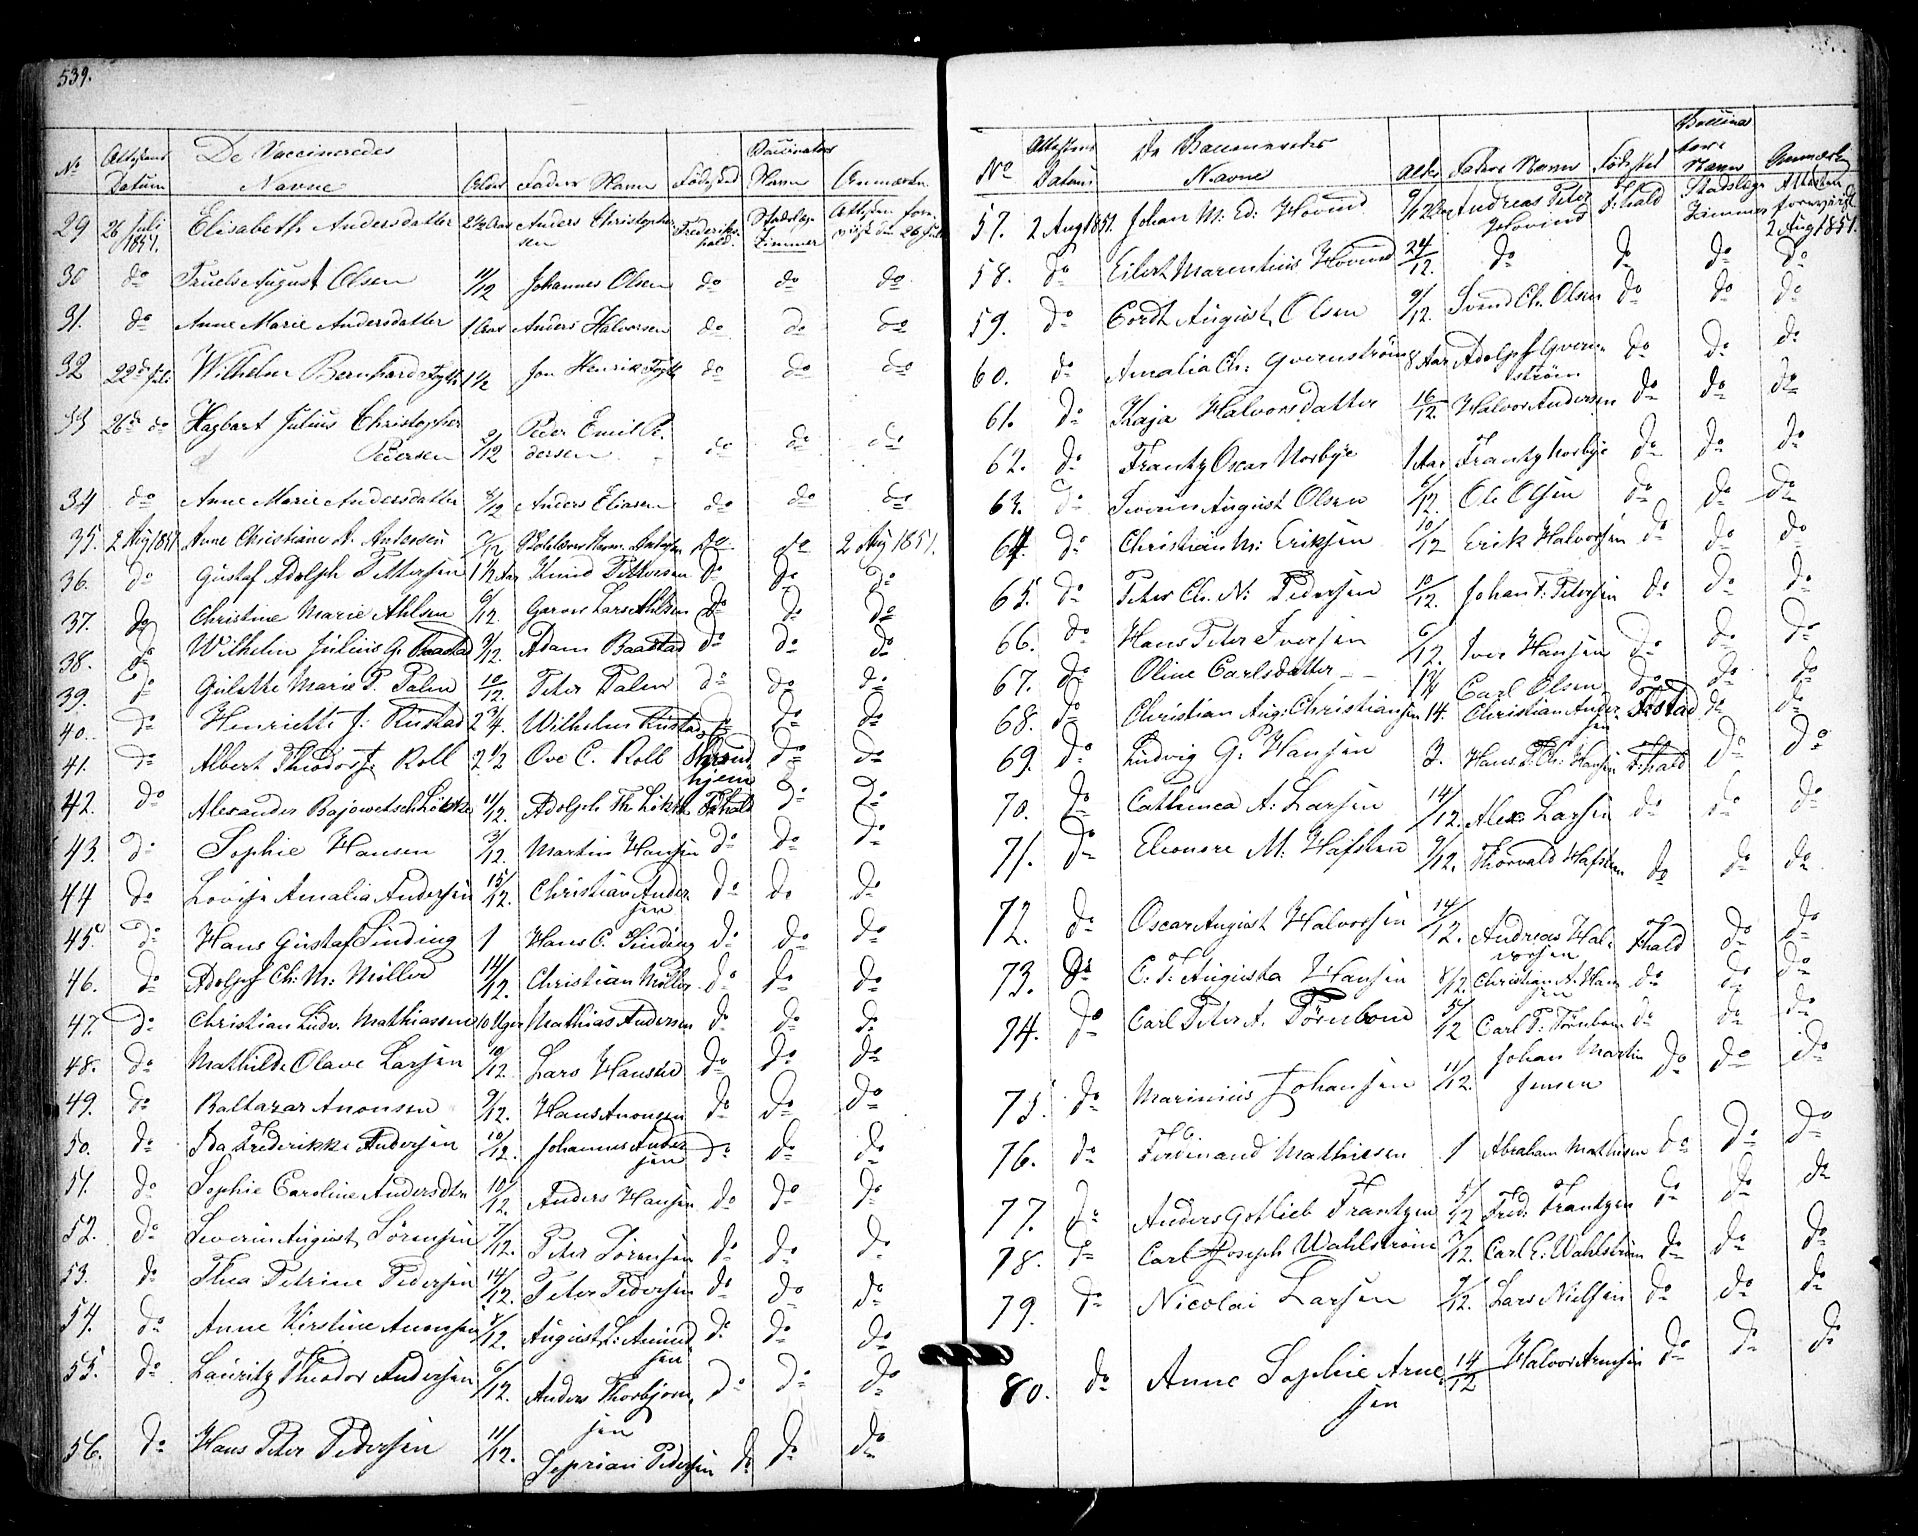 539.
No Attestens Datum De Vaccineredes Navne Alder Faders Navn Fødested Vaccinators Navn Anmærkn
29 26 Juli 1851. Elisabeth Andersdatter 2½ Aar Anders Christophersen Frederikshald. Stadslæge Zimmer Attesten forevist den 26 Juli
30 do Truels August Olsen 11/12 Johannes Olsen do do do
31. do Anne Marie Andersdatter 1 Aar Anders Halvorsen do do do
32 22de Juli Wilhelm Bernhard 1½ Jon Henrik do do do
33 26de do Hagbart Julius Christopher Pedersen 9/12 Peter Emil Pedersen do do do
34 do Anne Marie Andersdatter 8/12 Anders Eliasen do do do
35. 2 Aug 1851 Anne Christiane A. Andersen 7/12 do do 2 Aug 1851.
36. do Gustaf Adolph Pettersen 1½ Aar Knud Pettersen do do do
37. do Christine Marie Ahlsen 6/12 Lars Ahlsen do do do
38. do Wilhelm Julius G. Baastad 9/12. Adam Baastad do do do
39. do Gulette Marie P. Palen 10/12. Peter Palen do do do
40. do Henriette J: Rustad 2¾ Wilhelm Rustad do do do
41. do Albert Theodor F. Roll 2½ Ove C. Roll Throndhjem do do
42. do Alexander Løkke 11/12. Adolph Th. Løkke Fhald do do
43. do Sophie Hansen 3/12. Martin Hansen do do do
44 do Lovise Amalia Andersen 15/12. Christian Andersen do do do
45. do Hans Gustaf Sinding 1 Hans C. Sinding do do do
46. do Adolph Ch: M: Møller 14/12. Christian Møller do do do
47. do Christian Ludv. Mathiassen 10 Uger Mathias Andersen do do do
48. do Mathilde Olave Larsen 10/12. Lars Hansen do do do
49. do Baltazar Anonsen 9/12. Hans Anonsen do do do
50. do Ida Frederikke Andersen 10/12. Johannes Andersen do do do
51. do Sophie Caroline Andersdtr 10/12. Anders Hansen do do do
52. do Severin August Sørensen 7/12. Peter Sørensen do do do
53. do Thea Petrine Pedersen 14/12. Peter Pedersen do do do
54. do Anne Kirstine Amundsen 8/12. August L: Amundsen do do do
55. do Lauritz Theodor Andersen 6/12. Anders Thorbjørnsen do do do
56. do Hans Peter Pedersen 11/12. Seprian Pedersen do do do
No Attestens Datum De Vaccineredes Navne Alder Faders Navn Fødested Vaccinators Navn Anmærkn
57. 2 Aug 1851. Johan M: Ed: Hovind 9/12 Andreas Peter Hovind F:hald Stadslæge Zimmer Attesten forevist 2 Aug 1851.
58. do Eilert Marentius Hovind 24/12. do do do do
59. do Cordt August Olsen 9/12. Svend Ch. Olsen do do do
60. do Amalia Ch: Qvernstrøm 8 Aar Adolph Qvernstrøm do do do
61. do Kaja Halvorsdatter 16/12. Halvor Andersen do do do
62. do Frantz Oscar Norbye 1 Aar Frantz Norbye do do do
63. do Severin August Olsen 5/12. Ole Olsen do do do
64. do Christian M: Eriksen 10/12 Erik Halvorsen do do do
65. do Peter Ch. N: Pedersen 10/12. Johan P: Petersen do do do
66. do Hans Peter Iversen 6/12. Iver Hansen do do do
67. do Oline Carlsdatter 1¼ Carl Olsen do do do
68. do Christian Aug: Christiansen 14. Christian Andersen do do
69. do Ludvig G: Hansen 3. Hans P. Ch: Hansen F:hald do do
70. do Cathinca A: Larsen 14/12. Alex: Larsen do do do
71. do Eleonore M: Hafsten 9/12. Thorvald Hafsten do do do
72. do Oscar August Halvorsen 14/12. Andreas Halvorsen Fhald do do
73. do C. F. Augusta Hansen 8/12. Christian A. Hansen do do do
74. do Carl Peter A. Tørnbom 5/12 Carl P: Tørnbom do do do
75. do Marinius Johansen 11/12. Johan Martin Jensen do do do
76. do Ferdinand Mathiesen 1 Abraham Mathisen do do do
77. do Anders Gotlieb Frantzen 5/12 Fred: Frantzen do do do
78. do Carl Joseph Wahlstrøm 7/12. Carl E. Wahlstrøm do do do
79. do Nicolai Larsen 7/12. Lars Nielsen do do do
80. do Anne Sophie Arnesen 14/12 Halvor Arnesen do do do